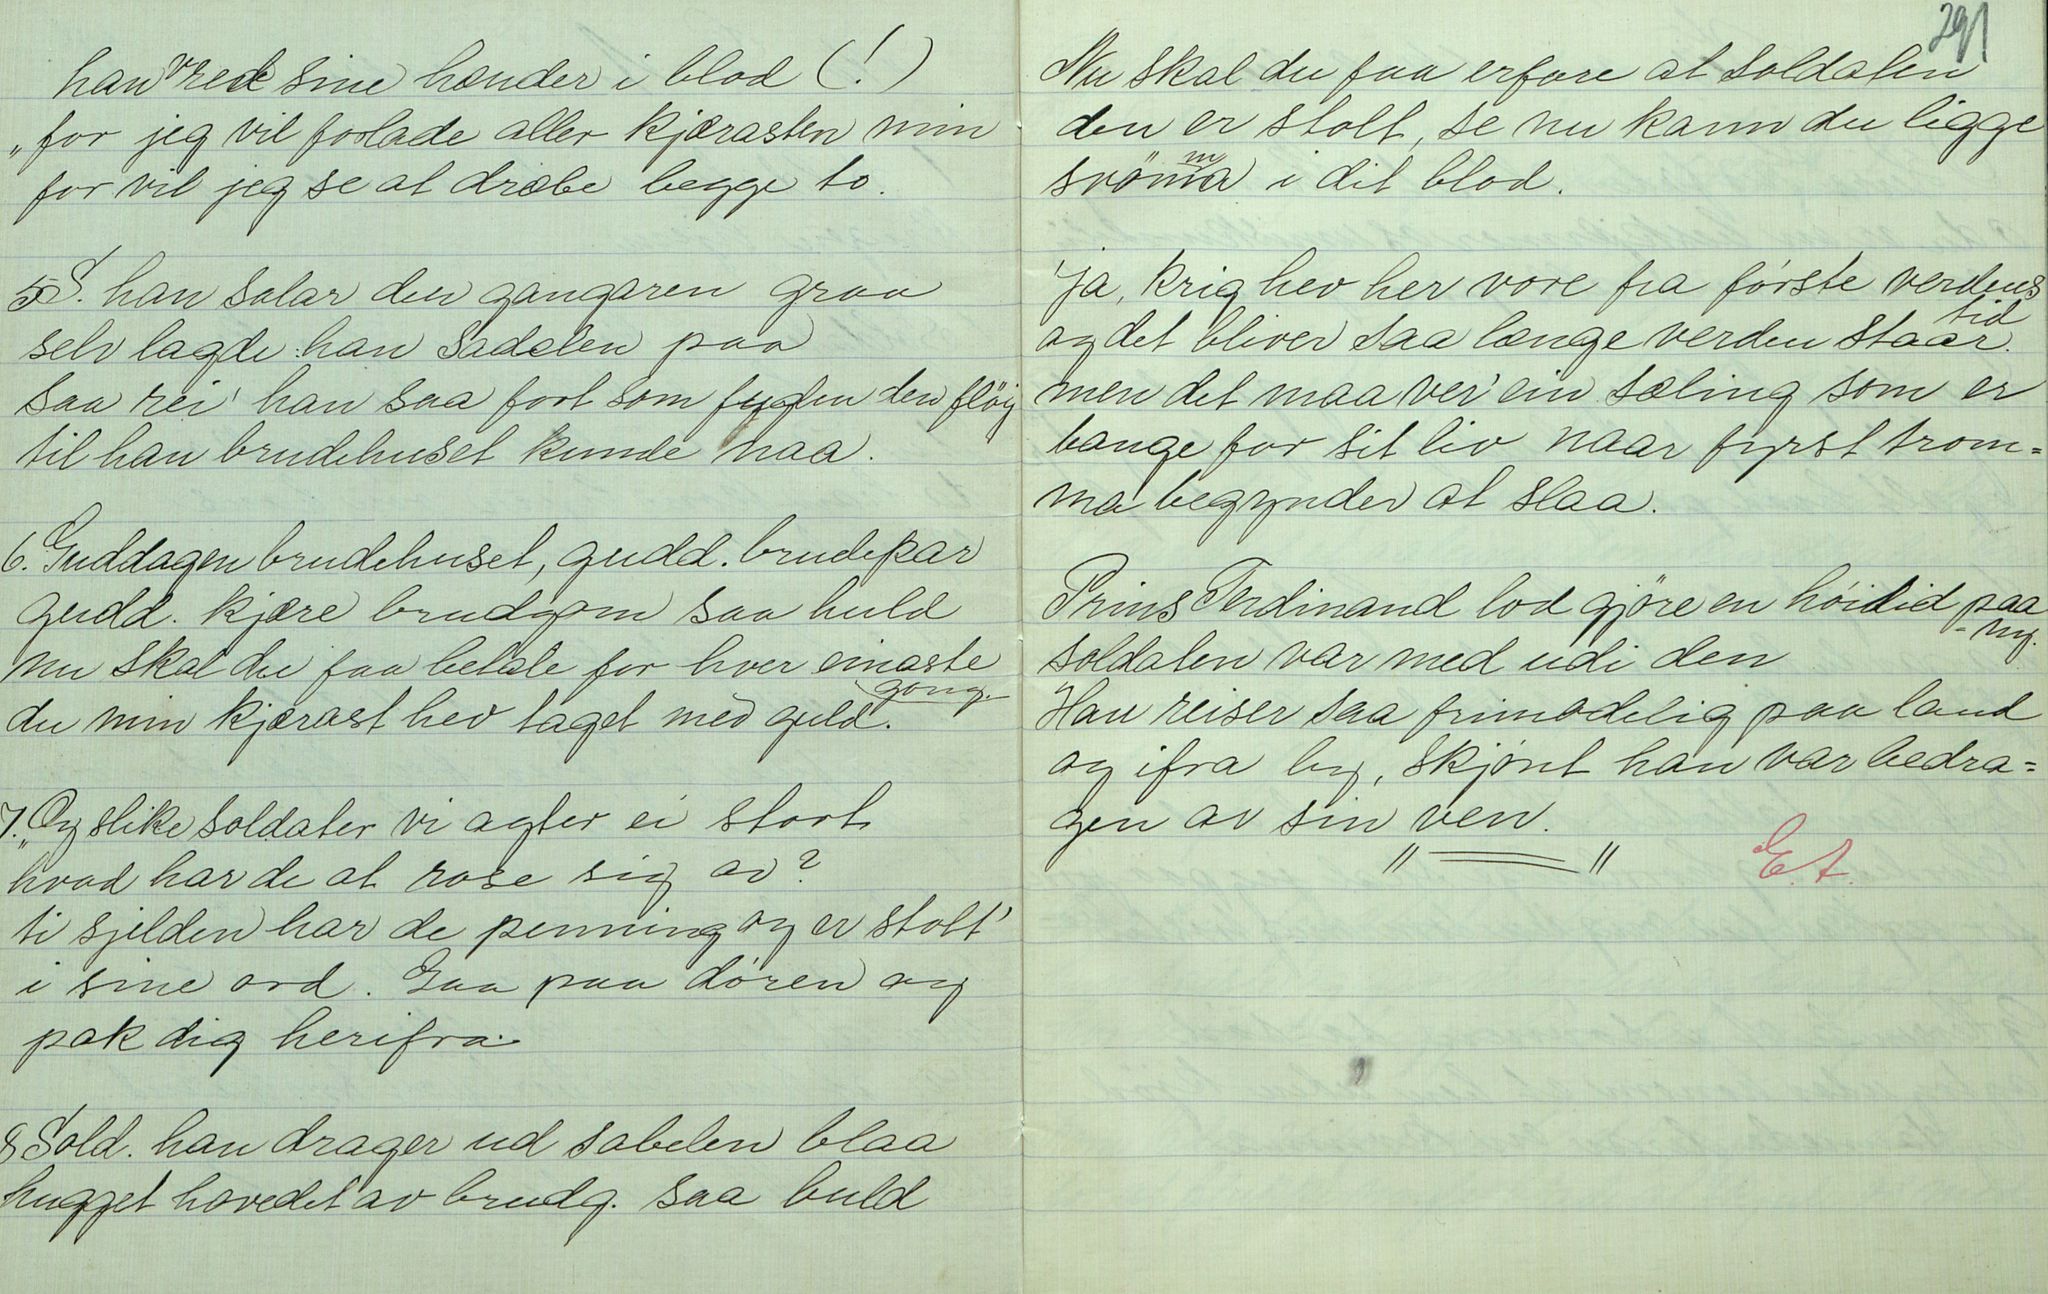 han vred sine hænder i blod (!)
„for jeg vil forlade aller kjærasten min
for vil jeg se at dræbe begge to.
5 S. han salar den gangaren graa
selv lagde han Sadelen paa
saa rei' han saa fort som fuglen den fløig
til han brudehuset kunde naa.
6. Guddagen brudehuset, gudd. brudepar
gudd. kjære brudgom saa huld
nu skal du faa betale for hver einaste
gong
du min kjærast hev taget med guld.
7. „Og slike soldater vi agter ei stort
hvad har de at rose sig av?
ti sjelden har de penning og er stolt'
i sine ord. Gaa paa døren og
pak dig herifra.
8 Sold. han drager ud sabelen blaa
hugget hovedet av brudg. saa buld
291
Nu skal du faa erfare at soldaten
den er stolt, se nu kann du ligge
svømma i dit blod.
Ja, krig hev her vore fra første verdens
tid
og det bliver saa længe verden staar.
men det maa ver' ein sæling som er
bange for sit liv naar fyrst trom=
ma begynder at slaa.
Prins Ferdinand lod gjøre en høitid paa
ny.
soldaten var med udi den
Han reiser saa frimodelig paa land
og ifra by, skjønt han var bedra=
gen av sin ven.
E.t.